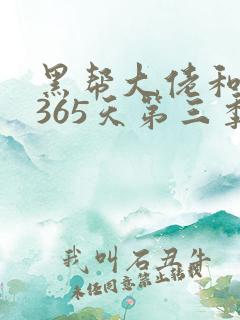 黑帮大佬和
365天第三季
我叫石丑牛
未经同意禁止转载